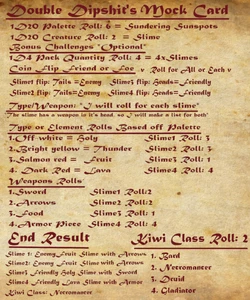 Double Dipshit's Mock Card
1D20 Palette Roll: 6 = Sundering Sunspots
1D20 Creature Roll: 2 = Slime
Bonus Challenges "Optional"
1D4 Pack Quantity Roll: 4 = 4x Slimes
Coin Flip Friend or Foe ↓ Roll for All or Each ↓
Slime1 flip: Tails=Enemy Slime3 flip: Heads=Friendly
Slime2 flip: Tails=Enemy Slime4 flip: Heads=Friendly
Type/Weapon: "I will roll for each slime"
"The slime has a weapon in it's head, so I will make a list for both"
Type or Element Rolls Based off Palette
1. Off-white = Holy Slime1 Roll: 3
2. Bright yellow = Thunder Slime2 Roll: 3
3. Salmon red = Fruit Slime3 Roll: 1
4. Dark Red = Lava Slime4 Roll: 4
Weapons Rolls
1. Sword Slime1 Roll: 2
2. Arrows Slime2 Roll: 2
3. Food Slime3 Roll: 1
4. Armor Piece Slime4 Roll: 4
End Result Kiwi Class Roll: 2
Slime 1: Enemy Fruit Slime with Arrows
Slime2 Enemy Fruit Slime with Arrows
Slime3 Friendly Holy Slime with Sword
Slime4 Friendly Lava Slime with Arrows
Kiwi Class: Necromancer
1. Bard
2. Necromancer
3. Druid
4. Gladiator